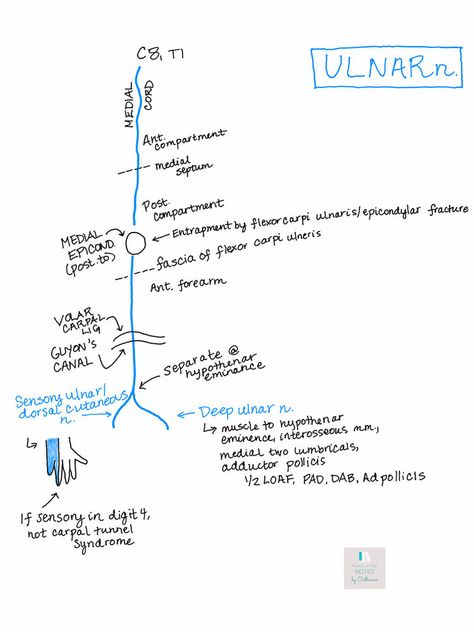 C8, T1
ULNAR n.
MEDIAL CORD
Ant. compartment
medial septum
Post. compartment
MEDIAL
EPICOND.
(post. to)
Entrapment by flexor carpi ulnaris/epicondylar fracture
fascia of flexor carpi ulneris
Ant. forearm
VOLAR
CARPAL
LIG
GUYON'S
CANAL
Separate @
hypothenar
eminence
Sensory ulnar/
dorsal cutaneous
n.
Deep ulnar n.
muscle to hypothenar
eminence, interosseous m.m.,
medial two lumbricals,
adductor pollicis
1/2 LOAF, PAD, DAB, Ad pollicis
If sensory in digit 4,
not carpal tunnel
syndrome
NOTES
by Catherine